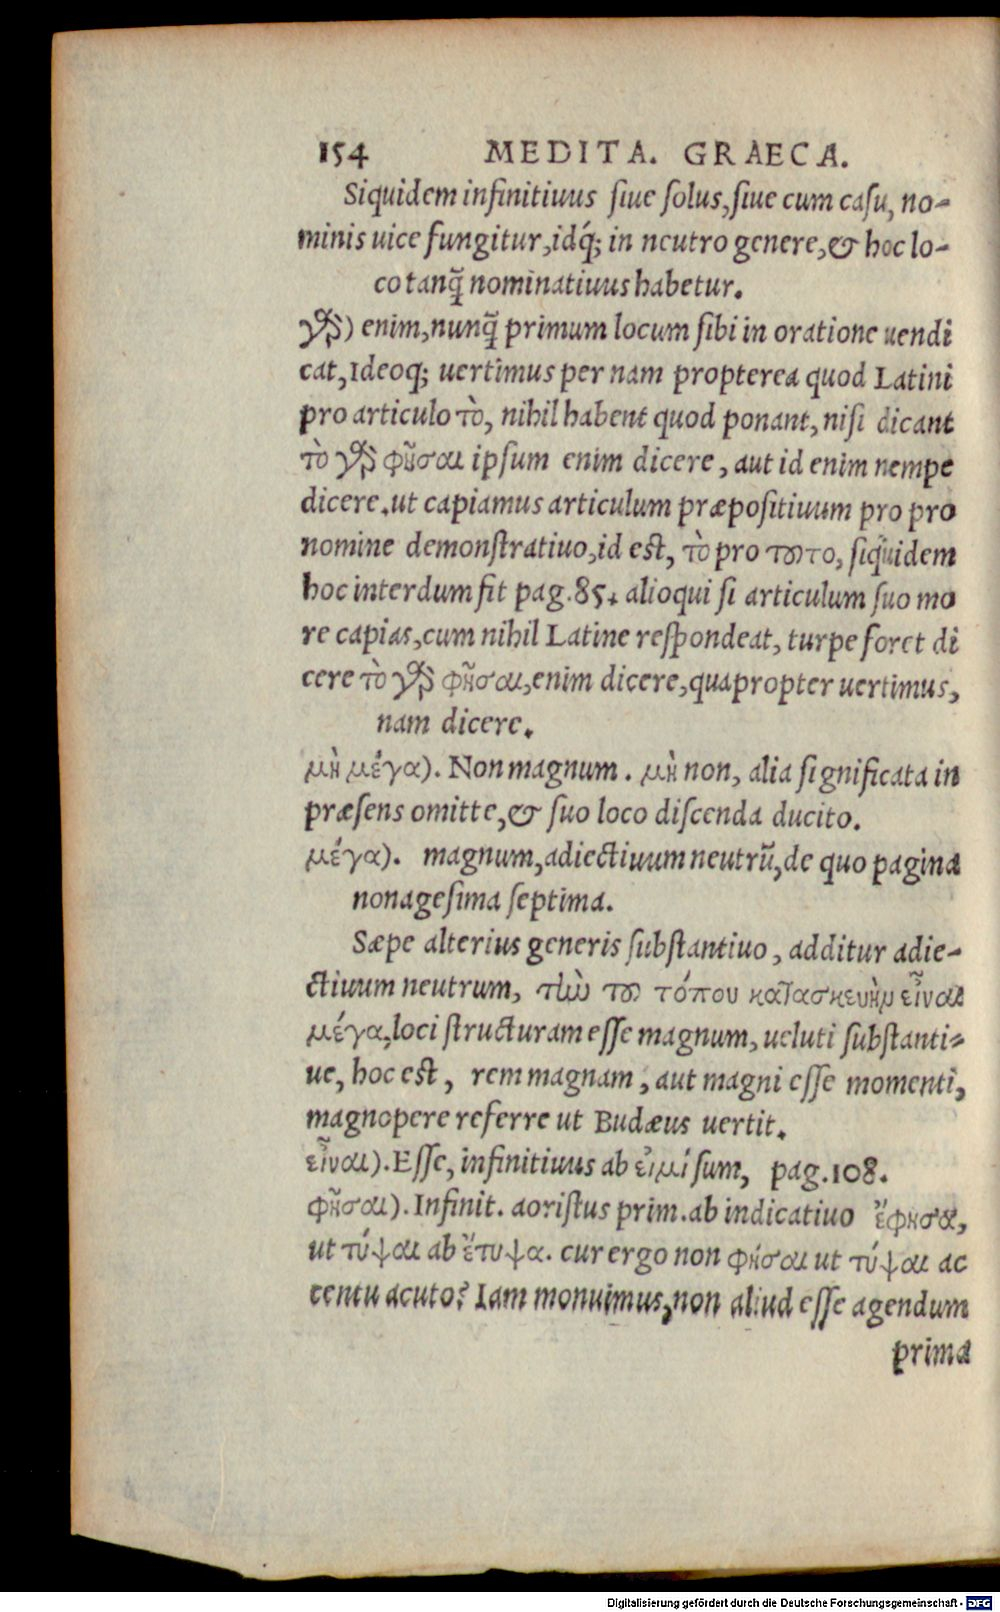 154 MEDITA. GRAECA.
Siquidem infinitiuus siue solus, siue cum casu, no-
minis uice fungitur, idq́; in neutro genere, & hoc lo-
co tanq̃ nominatiuus habetur.
γὰρ) enim, nunq̃ primum locum sibi in oratione uendi
cat, Ideoq; uertimus per nam propterea quod Latini
pro articulo τὸ, nihil habent quod ponant, nisi dicant
τὸ γὰρ φῆσαι ipsum enim dicere, aut id enim nempe
dicere. ut capiamus articulum præpositiuum pro pro
nomine demonstratiuo, id est, τὸ pro τȣτο, siquidem
hoc interdum fit pag. 85. alioqui si articulum suo mo
re capias, cum nihil Latine respondeat, turpe foret di
cere τὸ γὰρ φῆσαι, enim dicere, quapropter uertimus,
nam dicere.
μὴ μέγα). Non magnum. μὴ non, alia significata in
præsens omitte, & suo loco discenda ducito.
μέγα). magnum, adiectiuum neutrũ, de quo pagina
nonagesima septima.
Sæpe alterius generis substantiuo, additur adie-
ctiuum neutrum, τὴν τȣ τόπου κατασκευὴν εἶναι
μέγα, loci structuram esse magnum, ueluti substanti-
ue, hoc est, rem magnam, aut magni esse momenti,
magnopere referre ut Budæus uertit.
εἶναι). Esse, infinitiuus ab εἰμί sum, pag. 108.
φῆσαι). Infinit. aoristus prim. ab indicatiuo ἔφησα,
ut τύψαι ab ἔτυψα. cur ergo non φήσαι ut τύψαι ac
centu acuto? Iam monuimus, non aliud esse agendum
prima
Digitalisierung gefördert durch die Deutsche Forschungsgemeinschaft - DFG